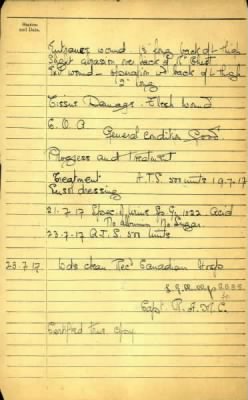 Station
and Date.
Entrance wound ½" long back of L thigh
Slight abrasion over back of R Chest
wound back of L thigh
2" long
Tissue Damage. Flesh Wound
C. O. A
General Condition Good
Progress and Treatment
Treatment A.T.S. 500 units 19.7.17
Eusol dressing
21.7.17 Spec. of urine Sp Gr 1022 Acid
No albumin No Sugar
23.7.17 A.T.S. 500 units
23.7.17 Wds clean Rec Canadian Hosp
Capt R.A.M.C.
Certified true copy